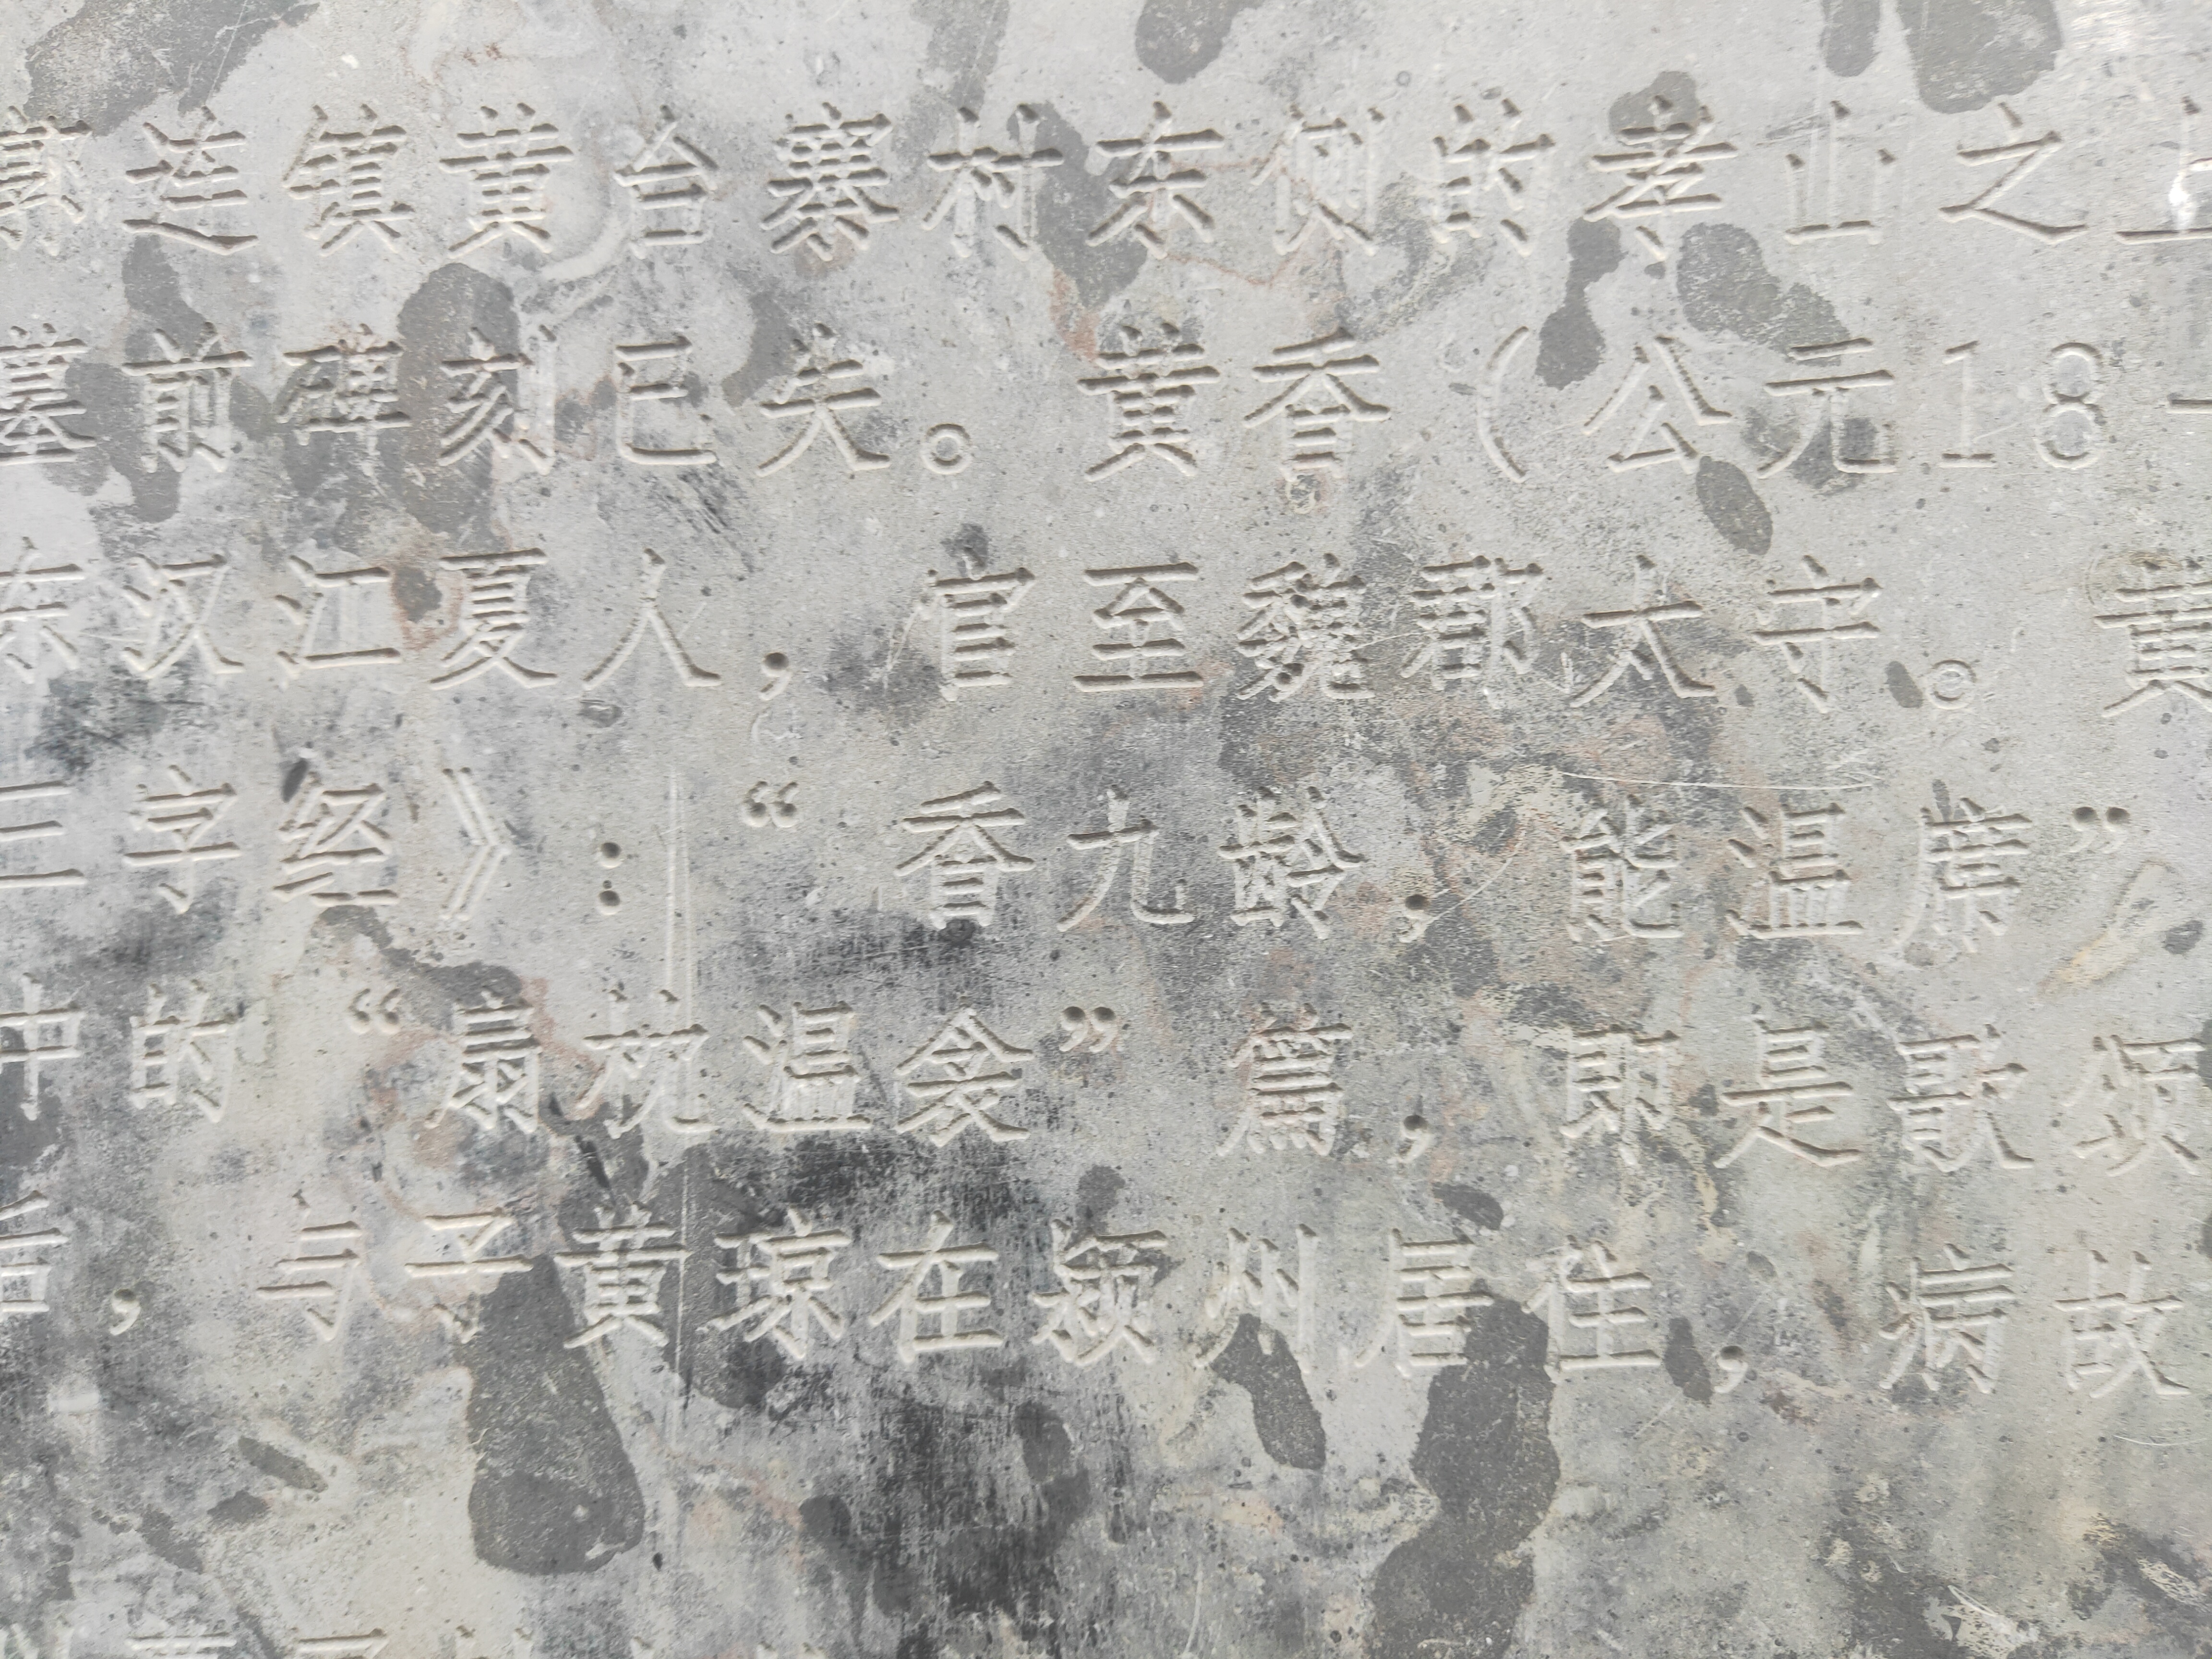 镇黄台寨村东侧的孝山之上
墓前碑刻已失。黄香（公元18
东汉江夏人，官至魏郡太守。黄
三字经》：“香九龄，能温席”
中的“扇枕温衾”篇，即是歌颂
后，与子黄琼在颍州居住，病故